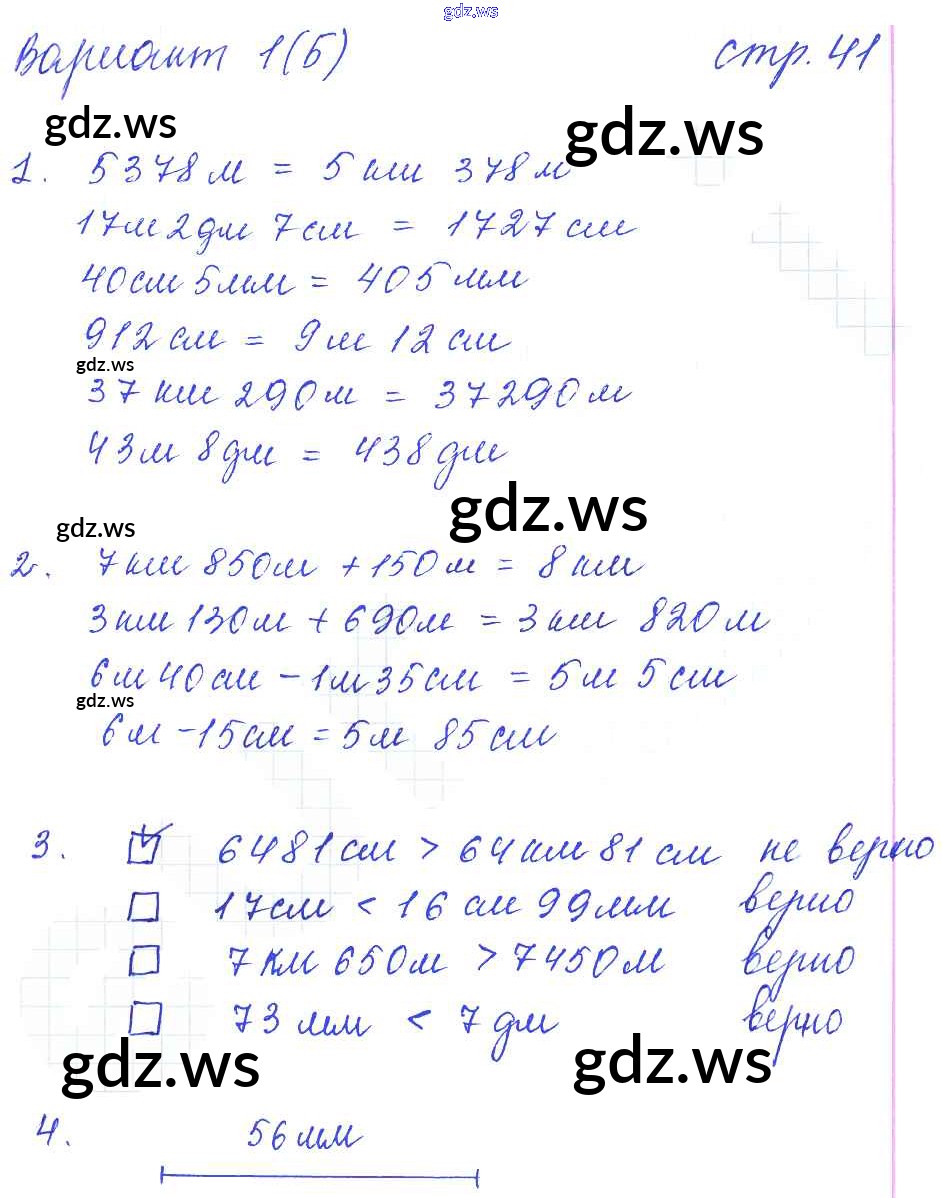 gdz.ws
Вариант 1(Б) стр. 41
gdz.ws gdz.ws
1. 5378м = 5 км 378м
17м 2дм 7см = 1727см
40см 5мм = 405 мм
912 см = 9м 12 см
gdz.ws
37 км 290м = 37290м
43м 8дм = 438 дм
gdz.ws
gdz.ws
2. 7км 850м + 150м = 8 км
3км 130м + 690м = 3 км 820 м
6м 40см - 1м 35см = 5м 5 см
gdz.ws
6м - 15см = 5м 85 см
3. 6481см > 64км 81 см не верно
17см < 16 см 99мм верно
7км 650м > 7450м верно
73 мм < 7 дм верно
gdz.ws gdz.ws
4. 56 мм